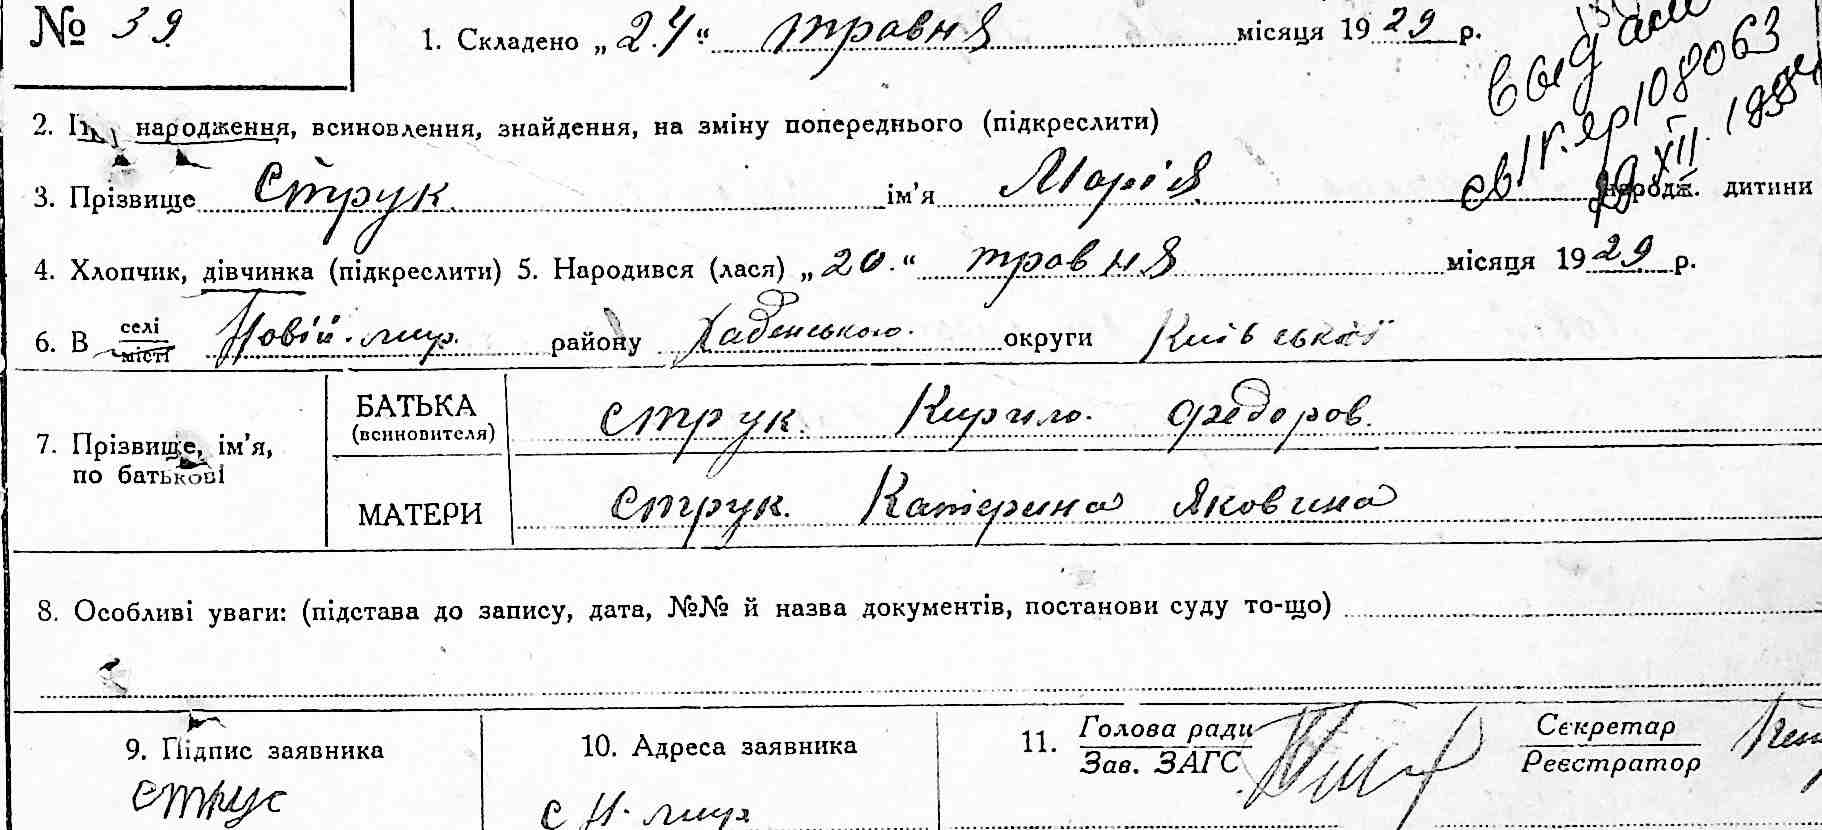 № 39
1. Складено „24“ травня місяця 1929 р.
2. народження, всиновлення, знайдення, на зміну попереднього (підкреслити)
3. Прізвище Струк ім’я Марія народж. дитини
4. Хлопчик, дівчинка (підкреслити) 5. Народився (лася) „20.“ травня місяця 1929 р.
6. В селі Новій. мир. району Хабенського. округи Київської
місті
7. Прізвище, ім’я, по батькові
БАТЬКА (всиновителя) Струк. Кирило. Федоров.
МАТЕРИ Струк. Катерина Яковина
8. Особливі уваги: (підстава до запису, дата, №№ й назва документів, постанови суду то-що)
9. Підпис заявника
Струс
10. Адреса заявника
с Н. мир
11. Голова ради
Зав. ЗАГС
Секретар
Реєстратор
108063